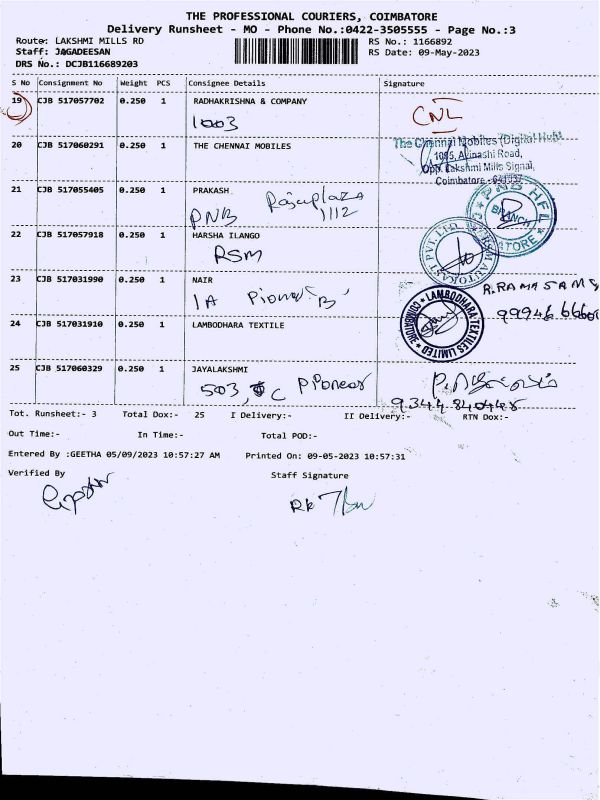 THE PROFESSIONAL COURIERS, COIMBATORE
Delivery Runsheet - MO - Phone No.:0422-3505555 - Page No.:3
Route: LAKSHMI MILLS RD RS No.: 1166892
Staff: JAGADEESAN RS Date: 09-May-2023
DRS No.: DCJB116689203
S No Consignment No Weight PCS Consignee Details Signature
19 CJB 517057702 0.250 1 RADHAKRISHNA & COMPANY
1003 CNL
20 CJB 517060291 0.250 1 THE CHENNAI MOBILES
The Chennai Mobiles (Digital Hub)
1095, Avinashi Road,
Opp. Lakshmi Mills Signal,
Coimbatore - 641037
21 CJB 517055405 0.250 1 PRAKASH
PNB Rajaplaza 1112
PNB HFL BRANCH
22 CJB 517057918 0.250 1 HARSHA ILANGO
RSM
RSM AUTOKAST PVT. LTD.
23 CJB 517031990 0.250 1 NAIR
1A Pioneer 'B'
24 CJB 517031910 0.250 1 LAMBODHARA TEXTILE
LAMBODHARA TEXTILES LIMITED COIMBATORE
25 CJB 517060329 0.250 1 JAYALAKSHMI
503, C Pioneer
Tot. Runsheet:- 3 Total Dox:- 25 I Delivery:- II Delivery:- RTN Dox:-
Out Time:- In Time:- Total POD:-
Entered By :GEETHA 05/09/2023 10:57:27 AM Printed On: 09-05-2023 10:57:31
Verified By Staff Signature